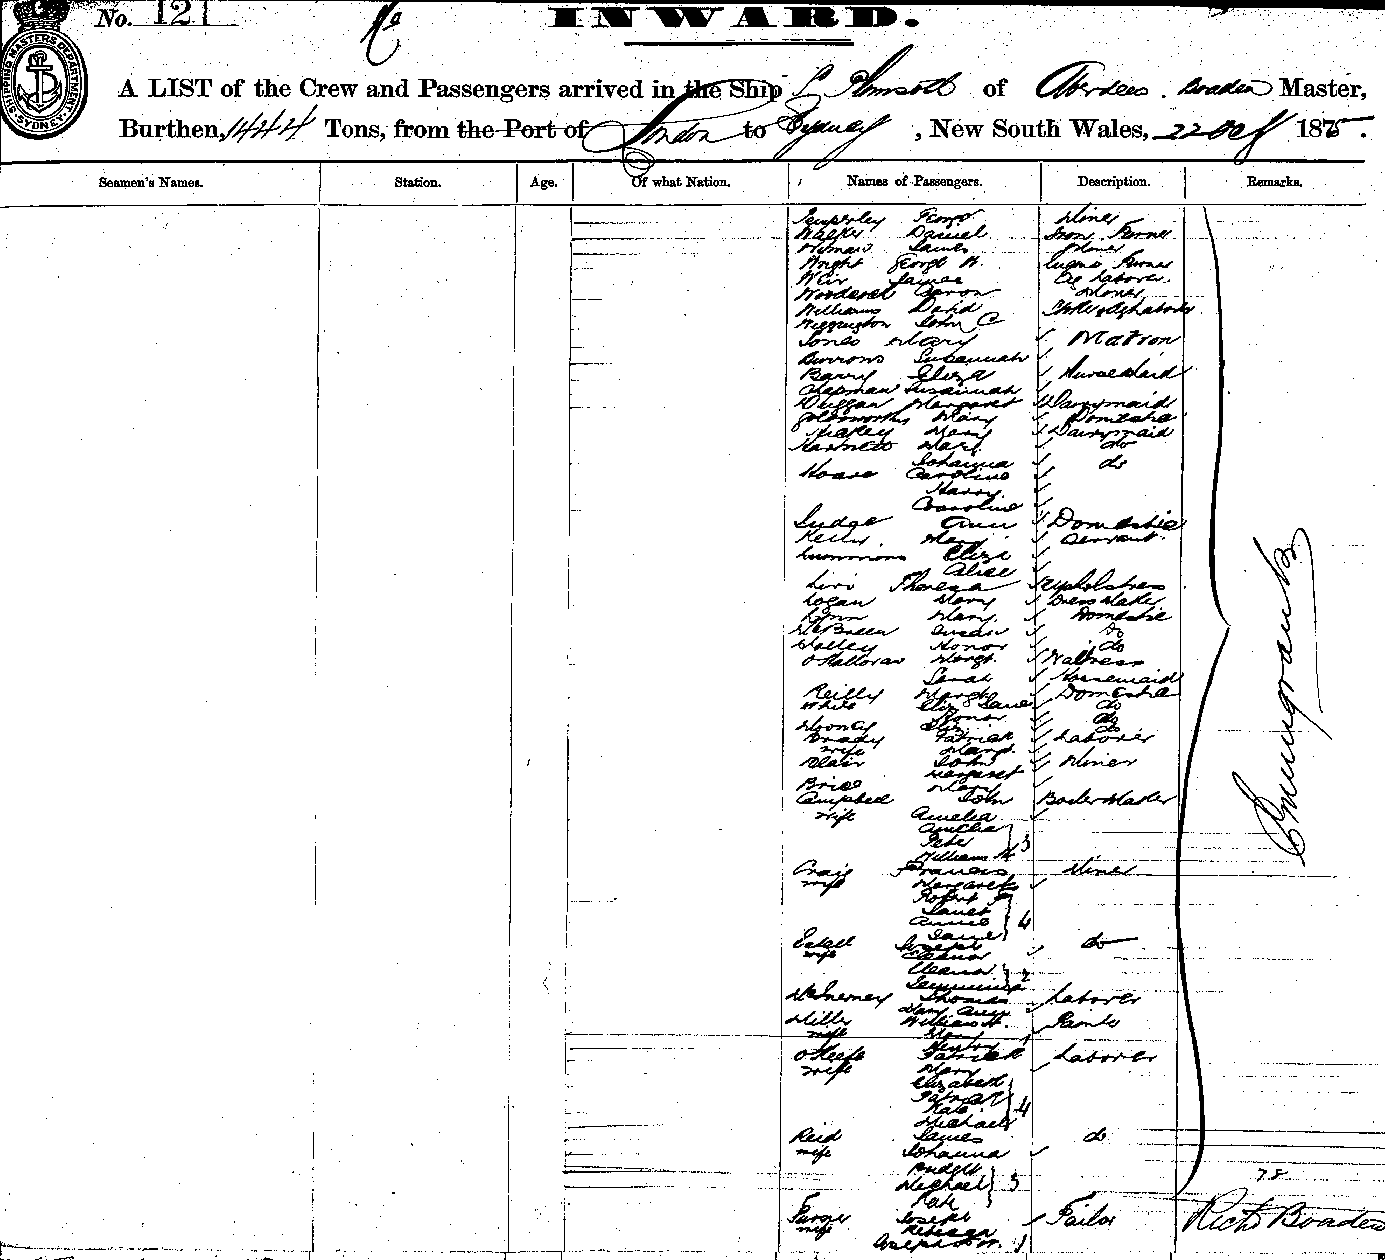 No. 121
INWARD.
SHIPPING MASTERS DEPARTMENT
SYDNEY
A LIST of the Crew and Passengers arrived in the Ship L Plimsoll of Aberdeen. Boaden Master,
Burthen, 1444 Tons, from the Port of London to Sydney, New South Wales, 22 Oct 1875.
Seamen's Names. Station. Age. Of what Nation. Names of Passengers. Description. Remarks.
Miner
Walker Daniel Iron Turner
James Miner
Wright George H. Engine Turner
Weir James Ag Laborer
Miner
Williams David
John C
Jones Mary Matron
Burrows Susannah
Barry Eliza Nursemaid
Chapman Susannah
Duggan Margaret Dairymaid
Goldsworthy Mary Domestic
Mary Dairymaid
Hartnett Mary do
Johanna do
Hoare Caroline
Harry
Caroline
Judge Ann Domestic
Kelly Mary Servant
Eliza
Alice
Theresa Upholstress
Logan Mary Dress Maker
Lynn Mary Domestic
McBreen Susan Do
Malley Honor do
O'Halloran Margt. Waitress
Sarah Housemaid
Reilly Margt Domestic
White Eliz Jane do
Honor do
Mooney Eliz do
Brady Patrick Laborer
wife Margt.
Blair John Miner
Margaret
Brice Mary
Campbell John Boiler Maker
wife Amelia
Amelia
Peter 3
William H
Craig Francis Miner
wife Margaret
Robert F
Janet
Annie 4
Jane
Joseph do
wife Eleanor
Eleanor 2
Jemmima
McInerney Thomas Laborer
Mary Ann
Mills William H. Painter
wife Mary
1
O'Keefe Patrick Laborer
wife Mary
Elizabeth
Patrick
Kate 4
Michael
Reid James do
wife Johanna
Bridget
Michael 3
Kate
Joseph Tailor
wife Rebecca
Joseph 1
Emigrants
78
Richd Boaden